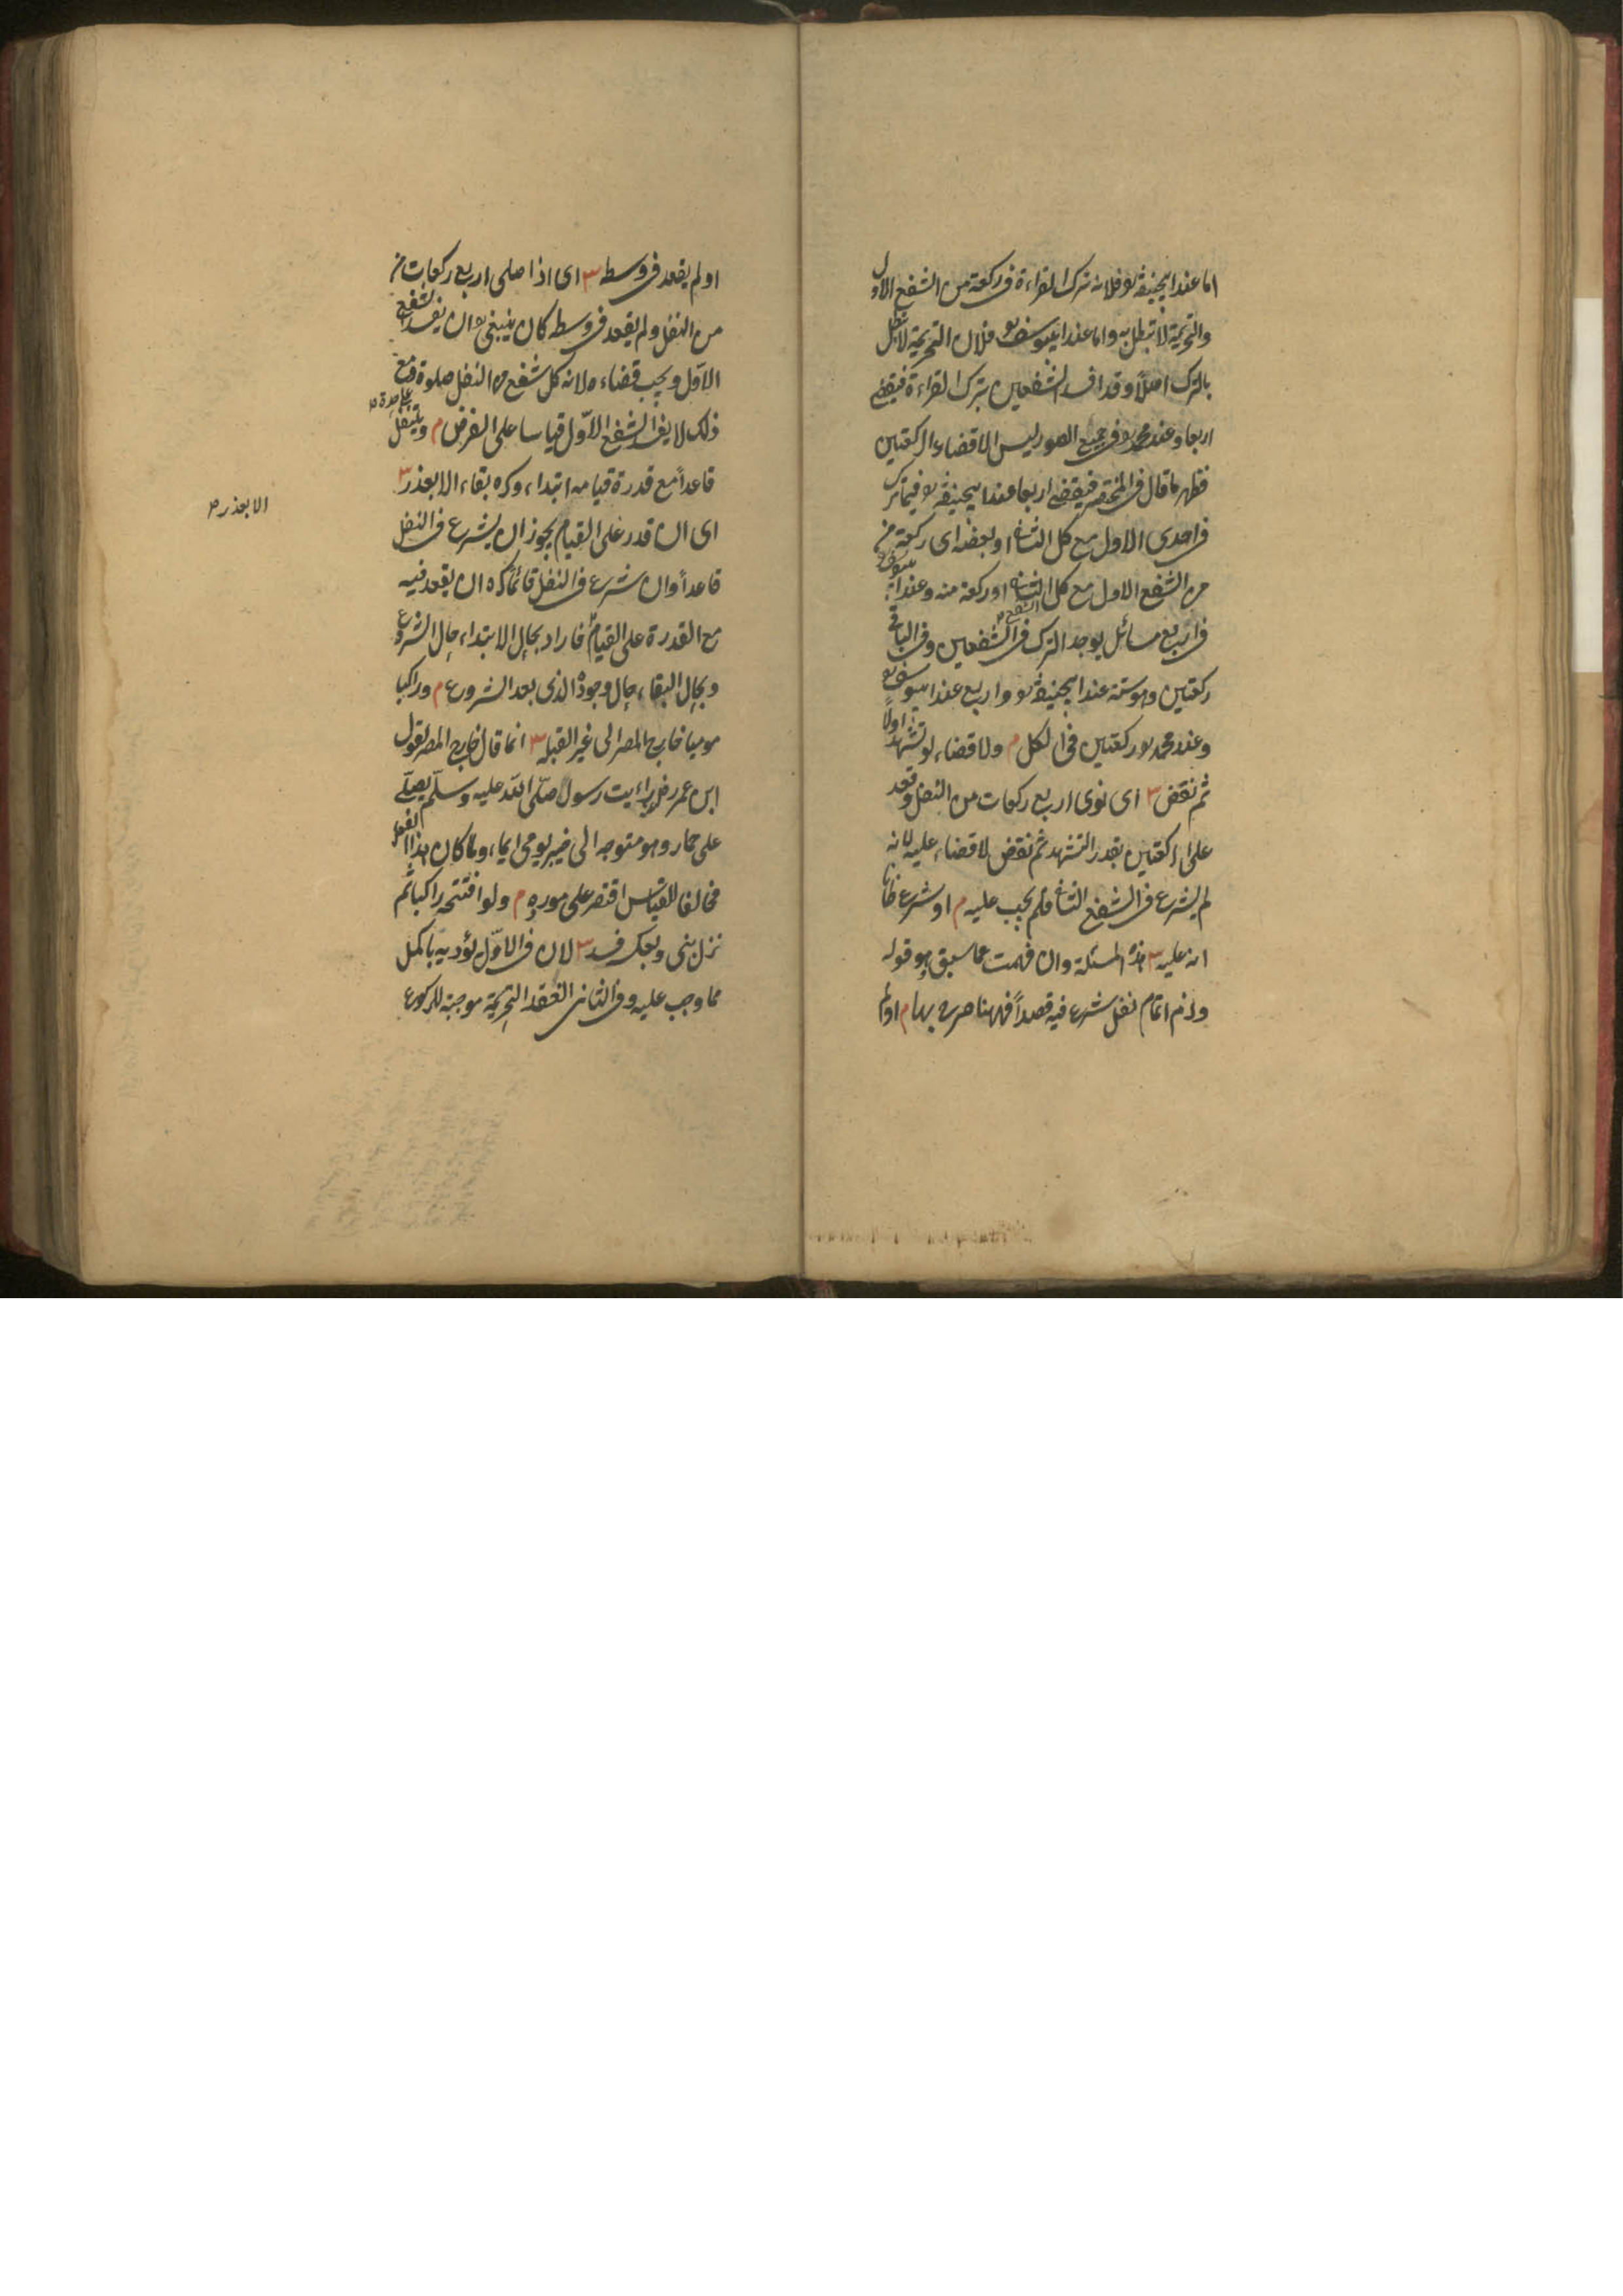 اما عند ابیحنیفة رح فلانه ترک القراءة فی رکعة من الشفع الاول
والتحریمة لا تبطل به واما عند ابی یوسف رح فلان التحریمة لا تبطل
بالترک اصلاً وقد افسد الشفعین بترک القراءة فیقضی
اربعا وعند محمد رح فی جمیع الصور لیس الا قضاء الرکعتین
فظهر ما قال فی المختصر فیقضی اربعا عند ابیحنیفة رح فیما ترک
فی احدی الاول مع کل الثانی او بعضه ای رکعة من
من الشفع الاول مع کل الثانی او رکعة منه وعند ابی یوسف رح
فی اربع مسائل یوجد الترک فی الشفعین وفی الباقی
رکعتین وهو ستة عند ابیحنیفة رح واربع عند ابی یوسف رح
وعند محمد رح رکعتین فی الکل م ولا قضاء لو تشهد اولاً
ثم نقض ش ای نوی اربع رکعات من النفل وقعد
علی الرکعتین بقدر التشهد ثم نقض لا قضاء علیه لانه
لم یشرع فی الشفع الثانی فلم یجب علیه م او شرع ظانا
انه علیه ش هذه المسئلة وان فهمت مما سبق وهو قوله
ولزم اتمام نفل شرع فیه قصداً فههنا صرح بها م او لم
او لم یقعد فی وسطه ش ای اذا صلی اربع رکعات من
من النفل ولم یقعد فی وسطه کان ینبغی ان یفسد الشفع
الاول ویجب قضاءه لانه کل شفع من النفل صلوة ومع
علی حدة
ذلک لا یفسد الشفع الاول قیاسا علی الفرض م ویتنفل
قاعداً مع قدرة قیامه ابتداء وکره بقاء الا بعذر ش
الا بعذر
ای ان قدر علی القیام یجوز ان یشرع فی النفل
قاعداً وان شرع فی النفل قائماً کره ان یقعد فیه
مع القدرة علی القیام فاراد بحال الابتداء حال الشروع
وبحال البقاء حال وجوده الذی بعد الشروع م وراکبا
مومیا خارج المصر الی غیر القبلة ش انما قال خارج المصر لقول
ابن عمر رض رایت رسول صلی الله علیه وسلم یصلی
علی حمار وهو متوجه الی خیبر یومی ایماء ولما کان هذا الفعل
مخالفا للقیاس اقتصر علی مورده م ولو افتتحه راکبا ثم
نزل بنی وبعکسه فسد ش لان فی الاول یؤدیه باکمل
مما وجب علیه وفی الثانی انعقد التحریمة موجبة للرکوع